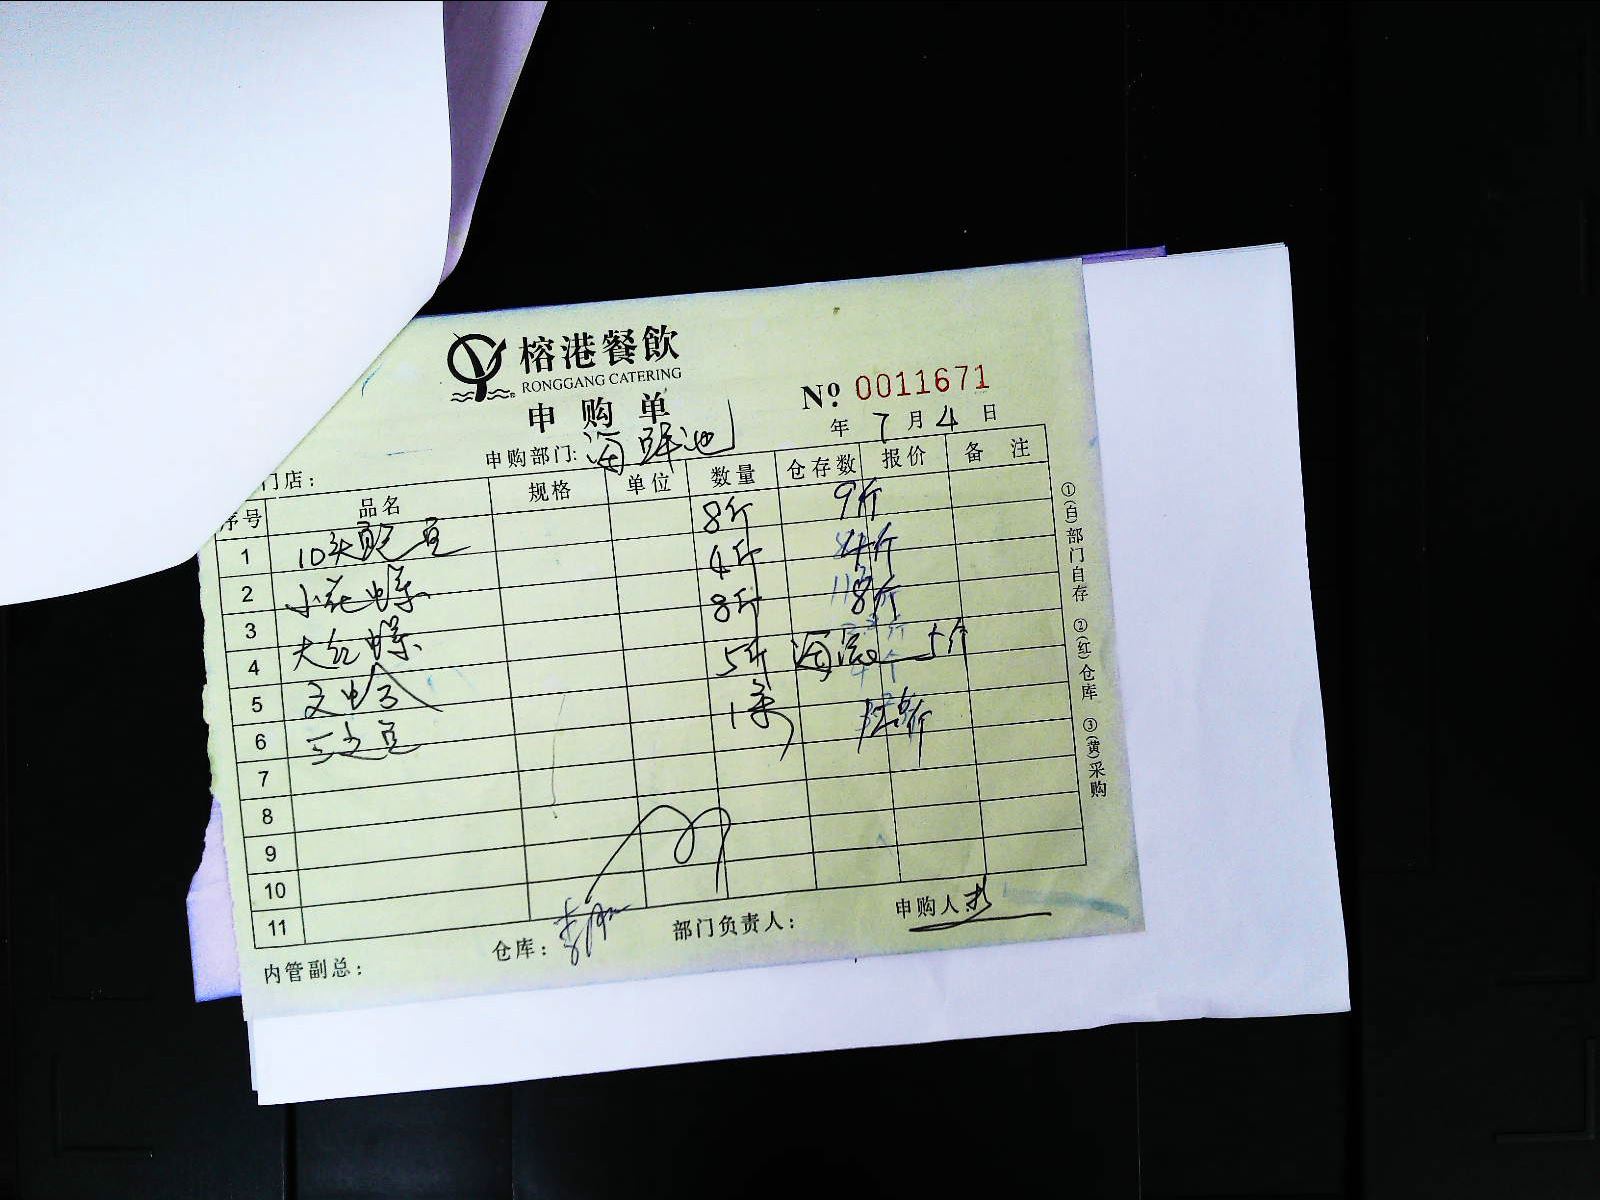 榕港餐飲
RONGGANG CATERING
申购单
№ 0011671
年 7 月 4 日
门店： 申购部门: 海鲜池
序号 品名 规格 单位 数量 仓存数 报价 备注
1 10头鲍鱼 8斤 9斤
2 小花螺 4斤 斤
3 大红螺 8斤 8斤
4 文蛤 5斤
5 三文鱼 1条
6
7
8
9
10
11
内管副总： 仓库： 部门负责人： 申购人:
①(白)部门自存 ②(红)仓库 ③(黄)采购